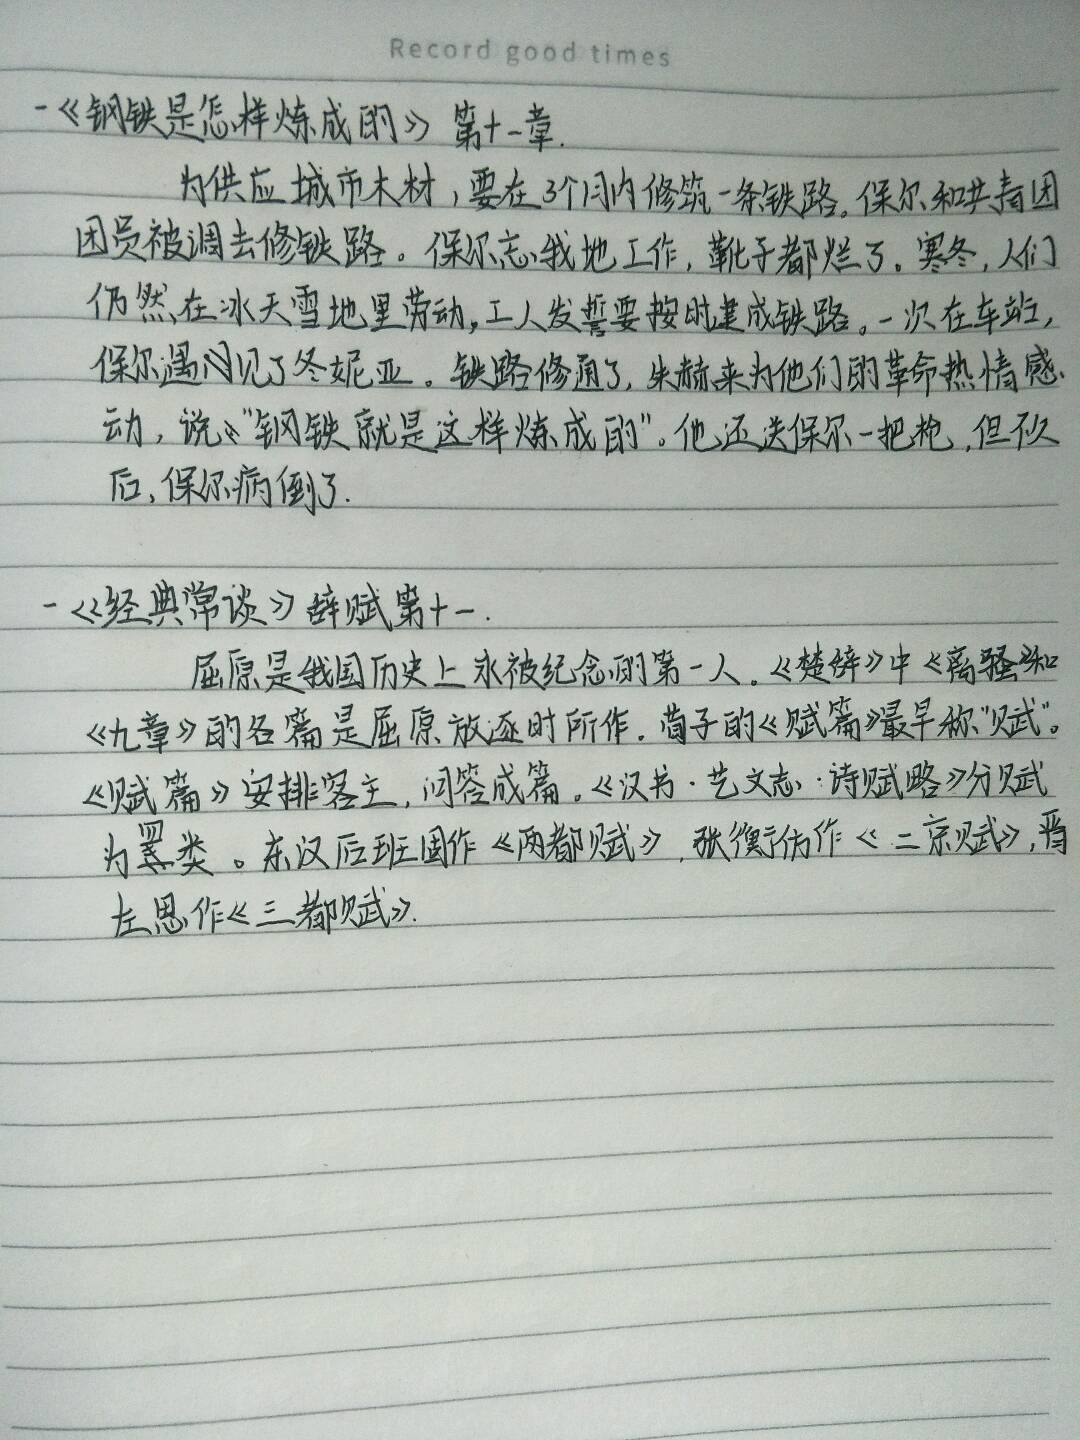 Record good times
-《钢铁是怎样炼成的》第十一章.
为供应城市木材，要在3个月内修筑一条铁路。保尔和共青团
团员被调去修铁路。保尔忘我地工作，靴子都烂了。寒冬，人们
仍然在冰天雪地里劳动，工人发誓要按时建成铁路。一次在车站，
保尔遇见了冬妮亚。铁路修通了，朱赫来为他们的革命热情感
动，说："钢铁就是这样炼成的"。他还送保尔一把枪，但不久
后，保尔病倒了.
-《经典常谈》辞赋第十一.
屈原是我国历史上永被纪念的第一人。《楚辞》中《离骚》和
《九章》的各篇是屈原放逐时所作。荀子的《赋篇》最早称"赋"。
《赋篇》安排客主，问答成篇。《汉书·艺文志·诗赋略》分赋
为类。东汉后班固作《两都赋》，张衡仿作《二京赋》，晋
左思作《三都赋》.